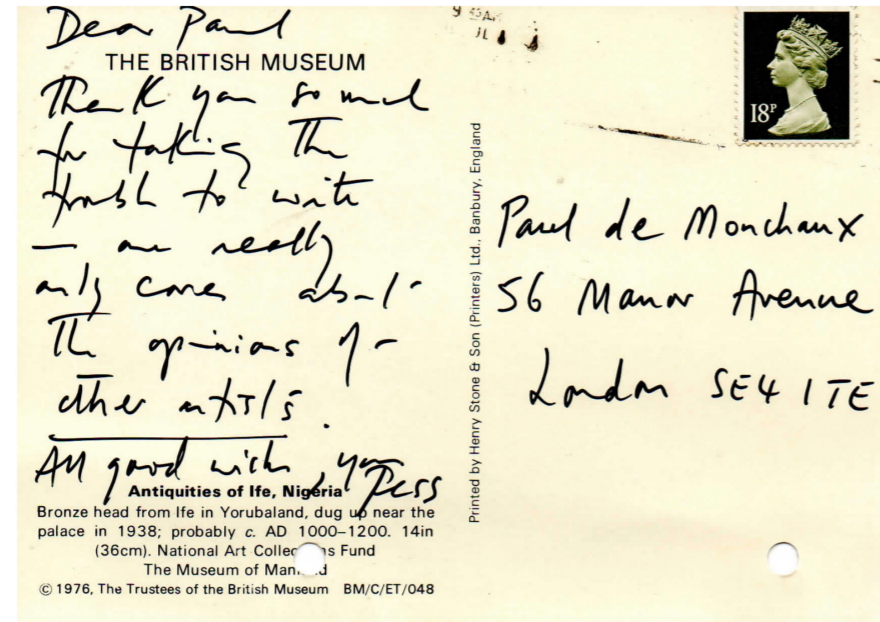 Dear Paul
THE BRITISH MUSEUM
Thank you so much
for taking the
trouble to write
— one really
only cares about
the opinions of
other artists.
All good wishes, yrs
Antiquities of Ife, Nigeria
Bronze head from Ife in Yorubaland, dug up near the
palace in 1938; probably c. AD 1000–1200. 14in
(36cm). National Art Collections Fund
The Museum of Mankind
© 1976, The Trustees of the British Museum BM/C/ET/048
Printed by Henry Stone & Son (Printers) Ltd., Banbury, England
18P
Paul de Monchaux
56 Manor Avenue
London SE4 1TE